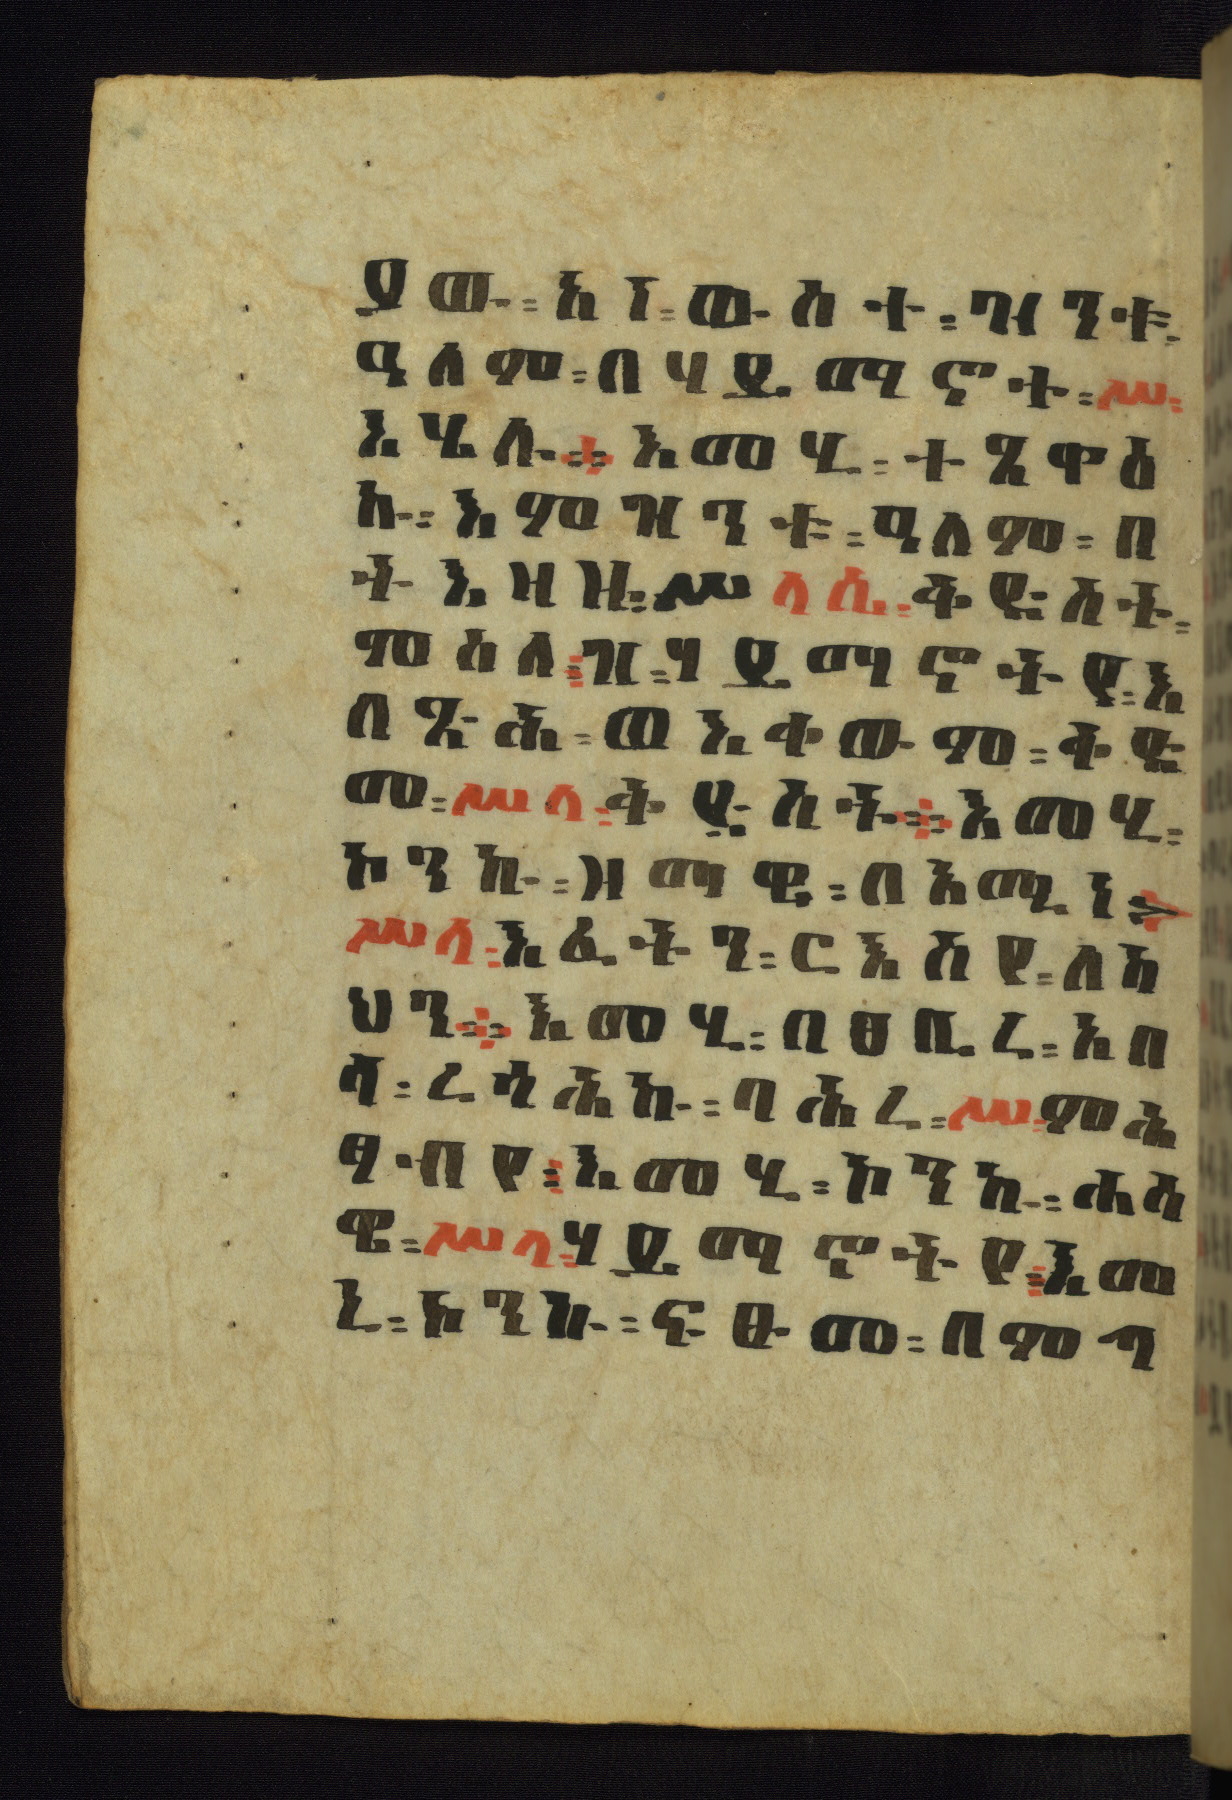 ያው፡ አነ፡ ውስተ፡ ዝንቱ፡
ዓለም፡ በሃይማኖተ፡ ሥ፡
እሄሉ። እመሂ፡ ተጼዋዕ
ኩ፡ እምዝንቱ፡ ዓለም፡ በ
ትእዛዘ፡ ሥላሴ፡ ቅድስት፡
ምስለ፡ ዝ፡ ሃይማኖትየ፡ እ
በጽሕ፡ ወእቀውም፡ ቅድ
መ፡ ሥላ፡ ቅድስት። እመሂ፡
ኮንኩ፡ ዘማዊ፡ በአሚነ።
ሥላ፡ እፌትን፡ ርእስየ፡ ለካ
ህን። እመሂ፡ በፀቢረ፡ አበ
ሳ፡ ረሳሕኩ፡ ባሕረ፡ ሥ፡ ምሕ
ፃብየ፡ እመሂ፡ ኮንኩ፡ ሐሳ
ዌ፡ ሥላ፡ ሃይማኖትየ፡ እመ
ኒ፡ ኮንኩ፡ ፍፁመ፡ በምግ